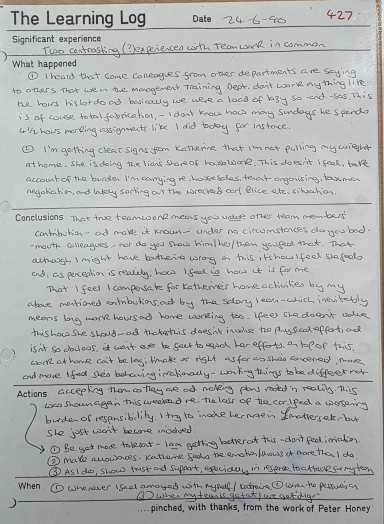 The Learning Log Date 24-6-90 427
Significant experience
Two contrasting (?) experiences with Teamwork in common
What happened
① I heard that some colleagues from other departments are saying
to others that we in the Management Training Dept. don't work anything like
the hours his lot do and basically we were a load of lazy so-and-sos. This
is of course total fabrication, - I don't know how many Sundays he spends
4½ hours marking assignments like I did today for instance.
② I'm getting clear signs from Katherine that I'm not pulling my weight
at home. She is doing the lion's share of housework. This doesn't I feel, take
account of the burden I'm carrying re. house sales, tenant organising, tax man
negotiation, and lately sorting out the wrecked car/Police etc. situation.
Conclusions That true teamwork means you value other team members'
contribution - and make it known - under no circumstances do you bad
-mouth colleagues - nor do you show him/he/them you feel that. That
although I might have Katherine wrong on this, it's how I feel she feels
and, as perception is reality, how I feel is how it is for me.
That I feel I compensate for Katherine's home activities by my
above mentioned contributions, and by the salary I earn - which inevitably
means long work hours and home working too. I feel she doesn't value
this how she should - and that because this doesn't involve the physical effort, and
isn't so obvious, it won't ever be felt to equal her efforts. On top of this,
work at home can't be legitimate or right as far as she's concerned, more
and more I feel she's behaving irrationally - wanting things to be different not
Actions accepting them as they are and making plans rooted in reality. This
was shown again this weekend re. the loss of the car. I feel a worsening
burden of responsibility. I try to involve her more in £ matters etc. but
she just won't become involved.
① Be yet more tolerant - I am getting better at this - don't feel irritation.
② Make allowances - Katherine feels the emotion/shows it more than I do
③ As I do, show trust and support, especially in response to attacks on my team
When ① whenever I feel annoyed with myself / Katherine ② when
③ when my team is got at / we get
.....pinched, with thanks, from the work of Peter Honey